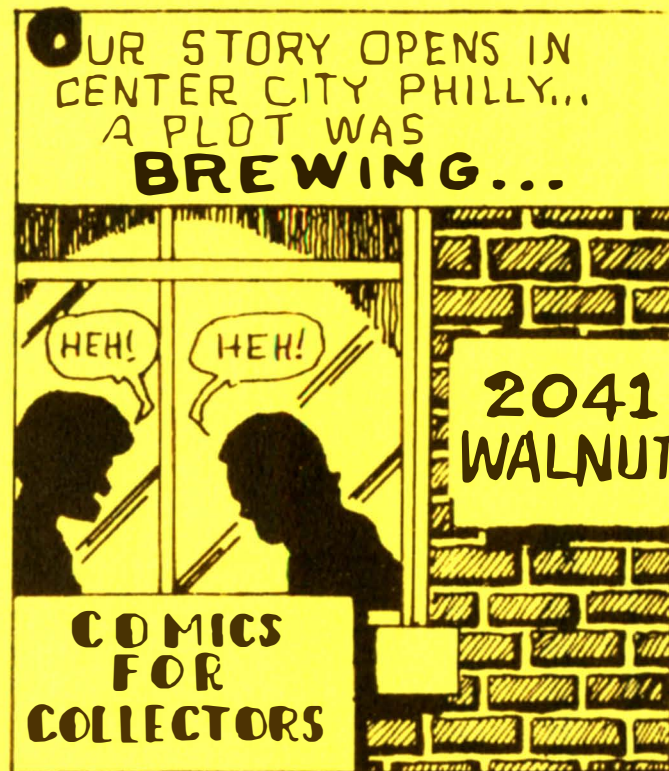 OUR STORY OPENS IN
CENTER CITY PHILLY...
A PLOT WAS
BREWING...
HEH!
HEH!
2041
WALNUT
COMICS
FOR
COLLECTORS